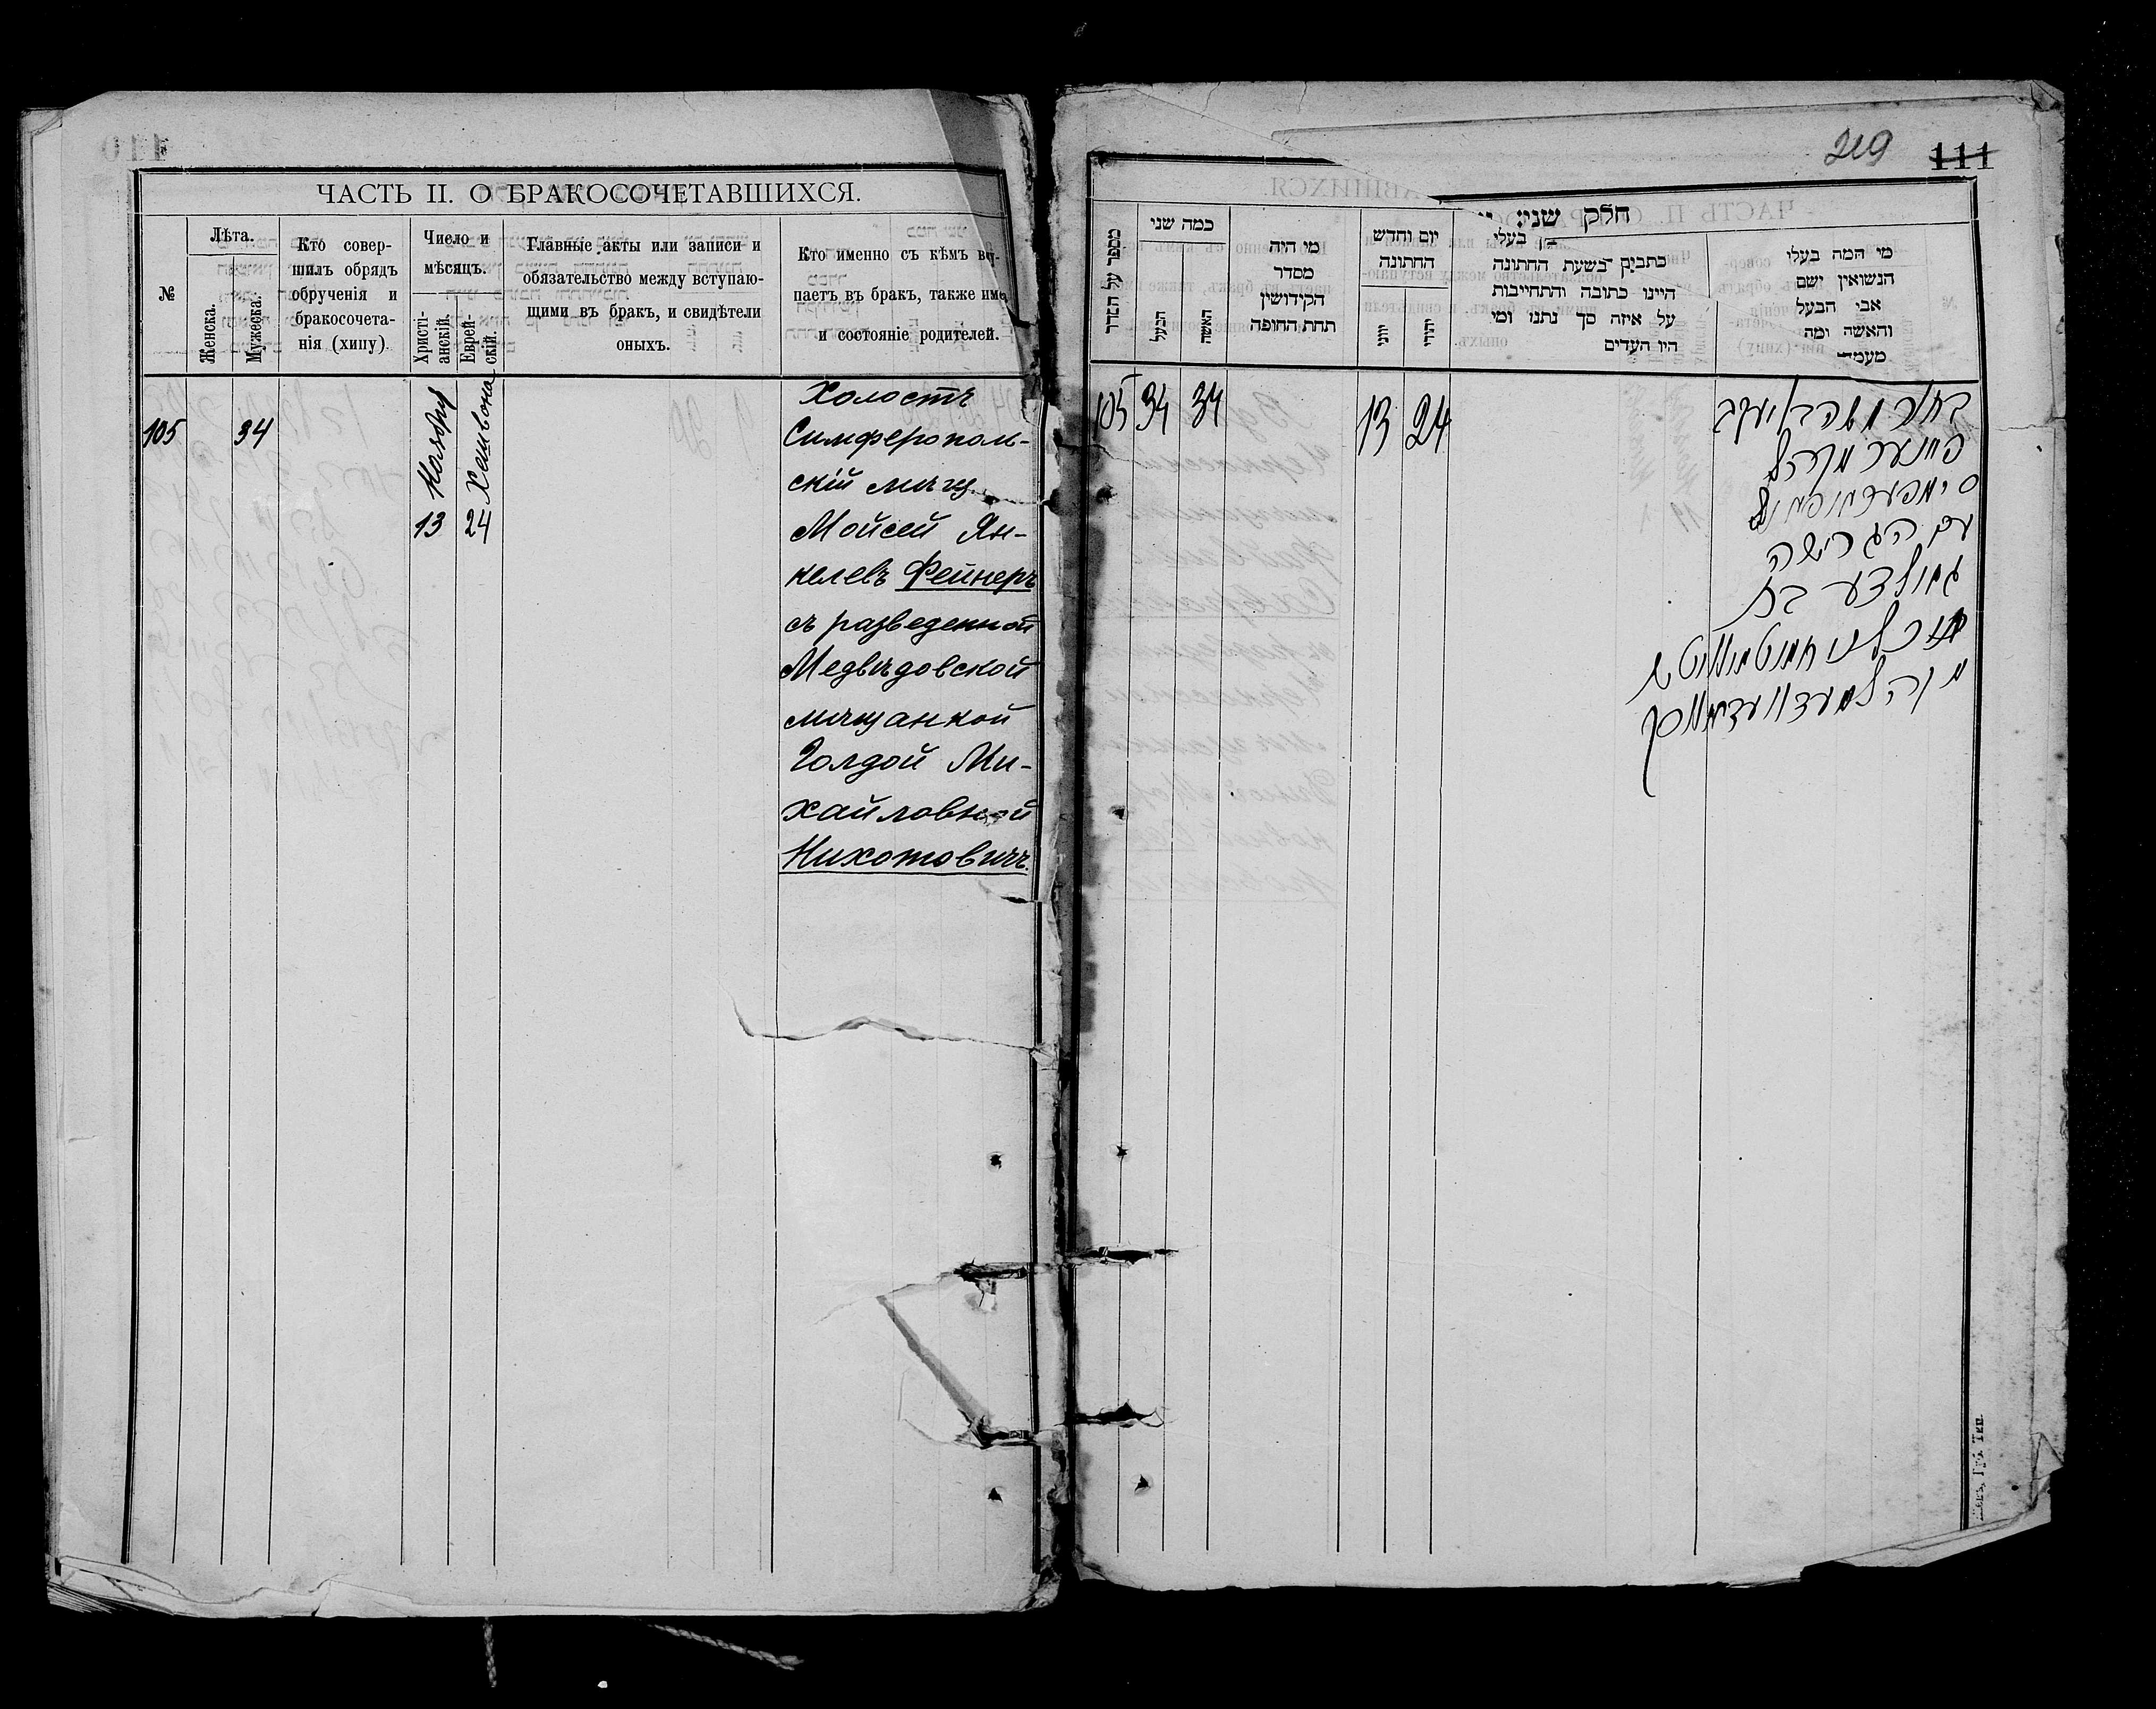 ЧАСТЬ II. О БРАКОСОЧЕТАВШИХСЯ.
№
Лѣта.
Женска.
Мужеска.
Кто совер-
шилъ обрядъ
обрученія и
бракосочета-
нія (хипу)
Число и
мѣсяцъ.
Христі-
анскій.
Еврей-
скій.
Главные акты или записи и
обязательство между вступаю-
щими въ бракъ, и свидѣтели
оныхъ.
Кто именно съ кѣмъ всту-
паетъ въ бракъ, также име
и состояніе родителей.
105
34
Ноября
13
Хешвона
24
Холостъ
Симферополь-
скій мѣщ.
Мойсей Ян-
келевъ Фейнеръ
съ разведенной
Медвѣдовской
мѣщанкой
Голдой Ми-
хайловной
Нихотовичъ.
219
111
חלק שני
מספר על הסדר
כמה שני
הבעל
האשה
מי היה
מסדר
הקידושין
תחת החופה
יום וחדש
החתונה
יווני
יהודי
בין בעלי
כתבים בשעת החתונה
היינו כתובה והתחייבות
על איזה סך נתנו ומי
היו העדים
מי המה בעלי
הנשואין ושם
אבי הבעל
והאשה ומה
מעמד
105
34
34
13
24
בחור משה ב יעקב
פיינער מקהל
סימפעראפאל
עם הגרושה
גאלדע בת